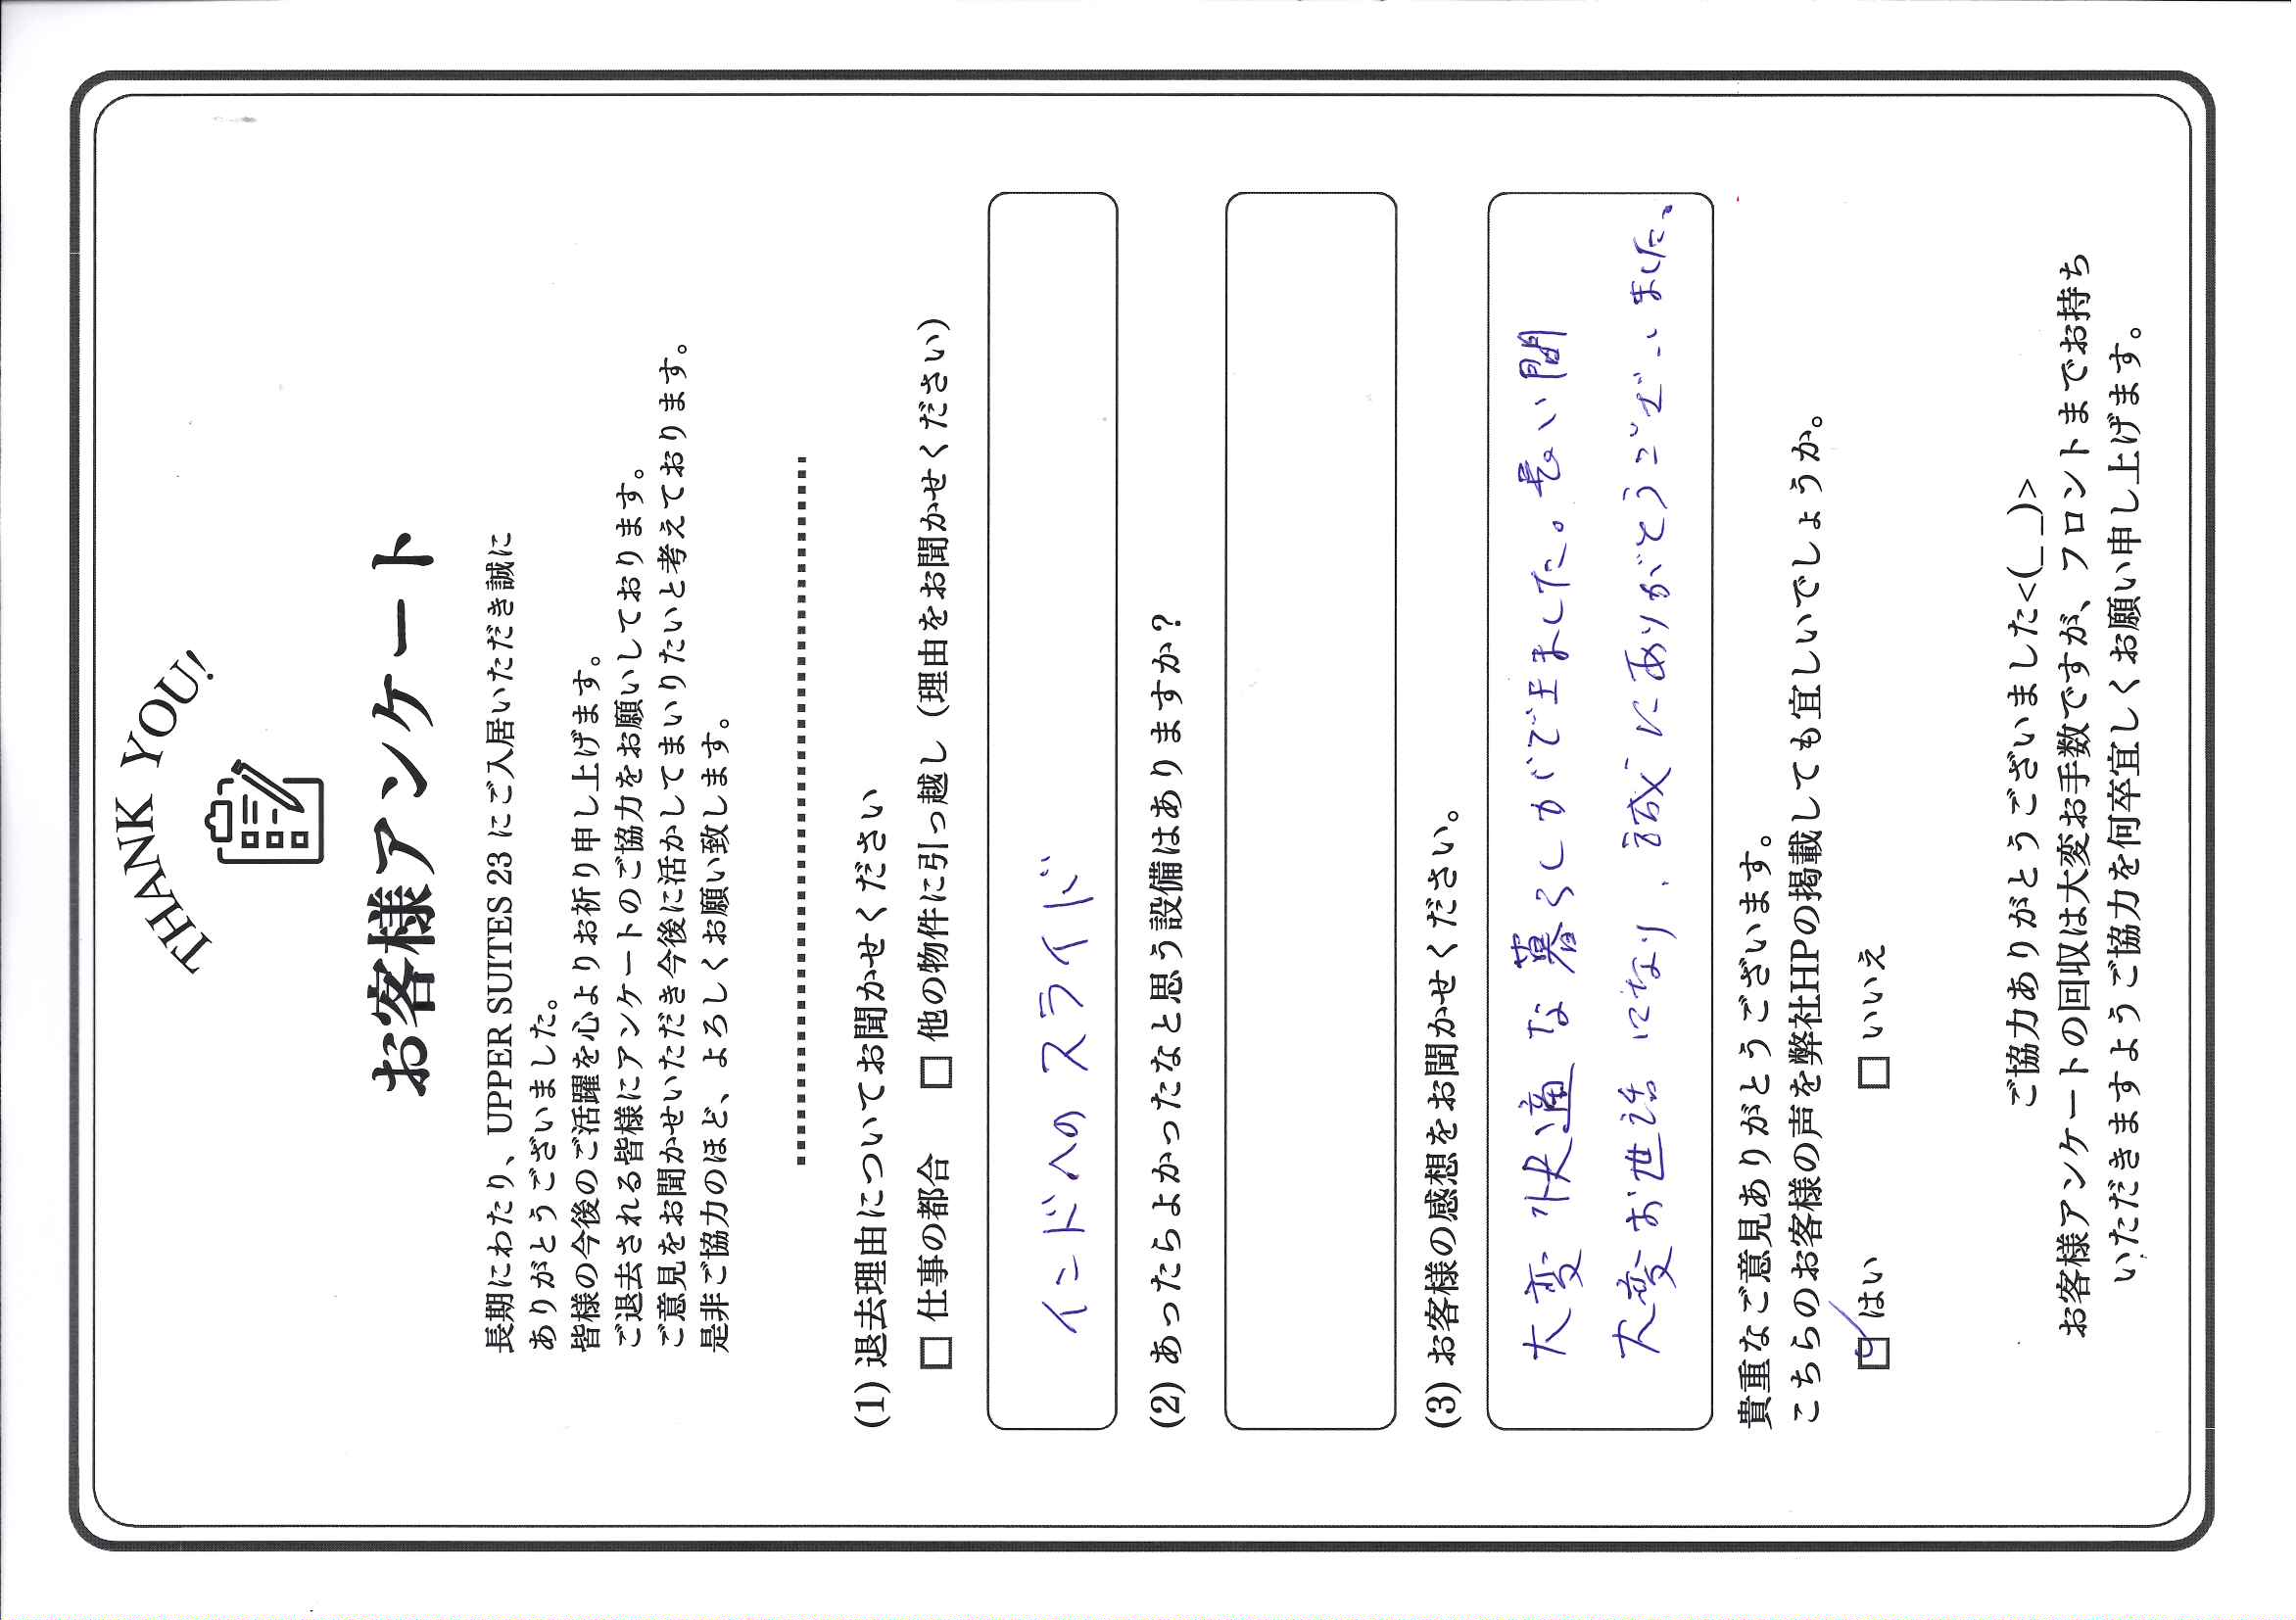 THANK YOU!
お客様アンケート
長期にわたり、UPPER SUITES 23 にご入居いただき誠に
ありがとうございました。
皆様の今後のご活躍を心よりお祈り申し上げます。
ご退去される皆様にアンケートのご協力をお願いしております。
ご意見をお聞かせいただき今後に活かしてまいりたいと考えております。
是非ご協力のほど、よろしくお願い致します。
(1) 退去理由についてお聞かせください
□ 仕事の都合 □ 他の物件に引っ越し（理由をお聞かせください）
インドへのスライド
(2) あったらよかったなと思う設備はありますか？
(3) お客様の感想をお聞かせください。
大変快適な暮らしができました。長い間
大変お世話になり、誠にありがとうございました。
貴重なご意見ありがとうございます。
こちらのお客様の声を弊社HPの掲載しても宜しいでしょうか。
☑ はい □ いいえ
ご協力ありがとうございました<(_ _)>
お客様アンケートの回収は大変お手数ですが、フロントまでお持ち
いただきますようご協力を何卒宜しくお願い申し上げます。